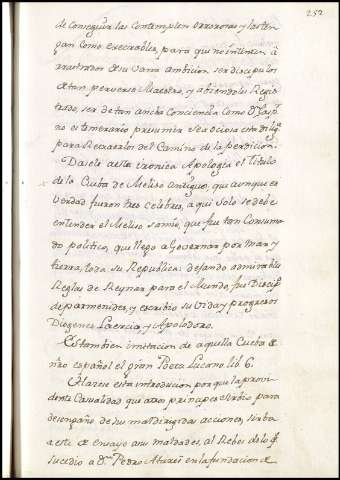 252
de conseguir las Contemplen orrorosas y las ten
gan Como execrables, para qui no intenten
arrastrados de su vana ambicion ser discipulos
de tan perverso Maestro, y abiendolos Regis
trado, ser de tan ancha Conciencia Como Dn Jasp.
no es temerario presumir sea ociosa esta dilig.a
para Retraerlos del Camino de la perdicion.
Dasele a esta ironica Apologia el titulo
de la Cueba de Meliso antiguo, que aunque es
verdad fueron tres celebres, aqui solo se debe
entender el Meliso samio, que fue tan Consuma
do politico, que llego a Governar por Mar y
tierra, toda su Republica: dejando admirables
Reglas de Reynar para el Mundo fue Discip.
de parmenides, y escribio su Vida y progresos
Diogenes Laercio, y Apolodoro.
Es tambien imitacion de aquella Cueba de
nro español el gran Poeta Lucano lib. 6.
Hacese esta introducion por que la provi
dente Casualidad que a otro principe sirbio para
desengaño de sus mal dirigidas acciones, sirba
a este de ensayo a sus maldades, al Rebes de lo q.
sucedio a Dn Pedro Atares en la fundacion de